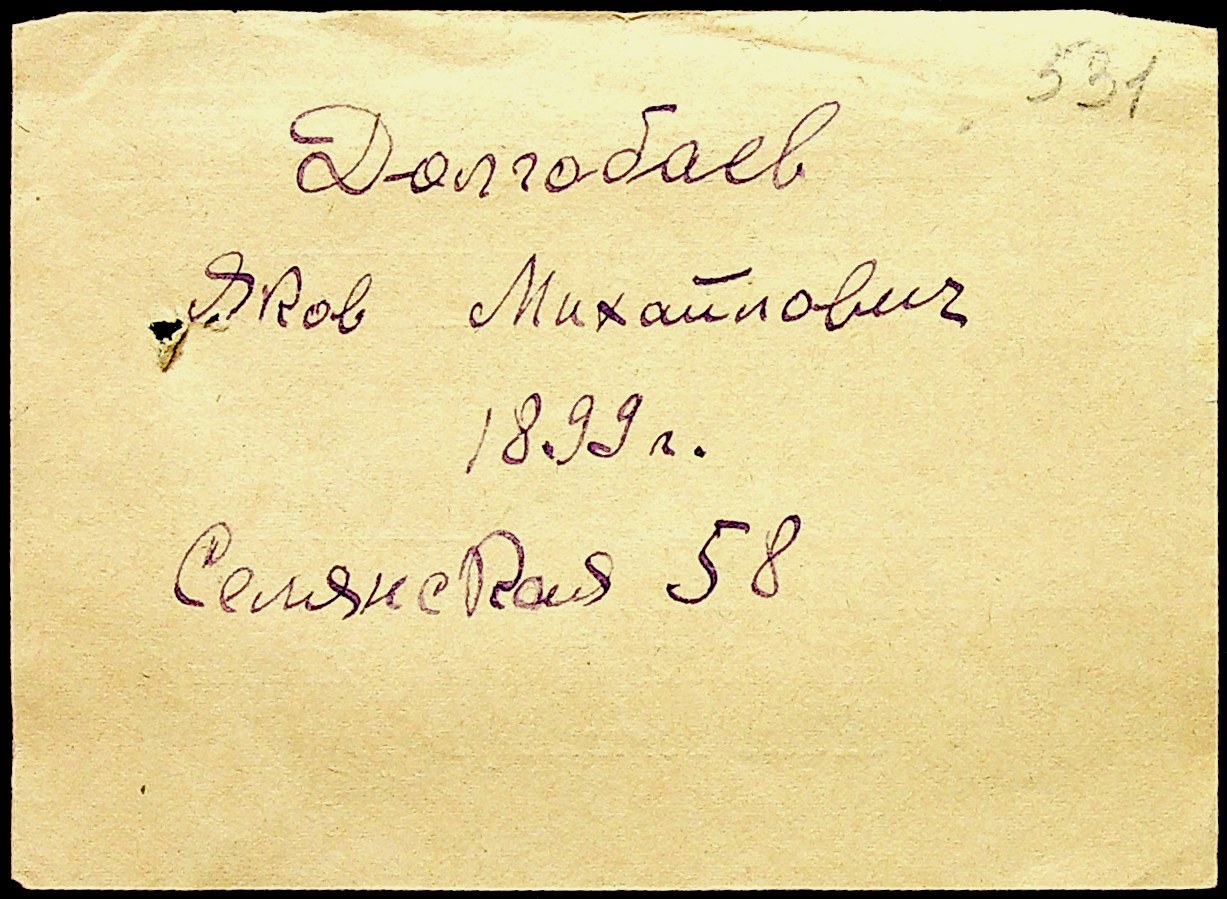 531
Долгобаев
Яков Михайлович
1899 г.
Селянская 58